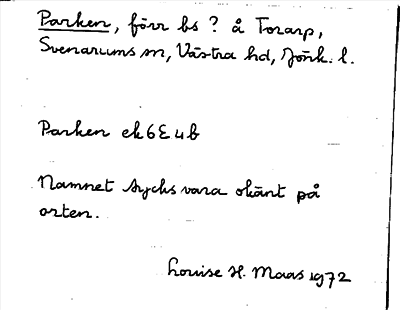 Parken, förr bs ? å Torarp,
Svenarums sn, Västra hd, Jönk. l.
Parken ek6E4b
Namnet tycks vara okänt på
orten.
Louise H. Maas 1972